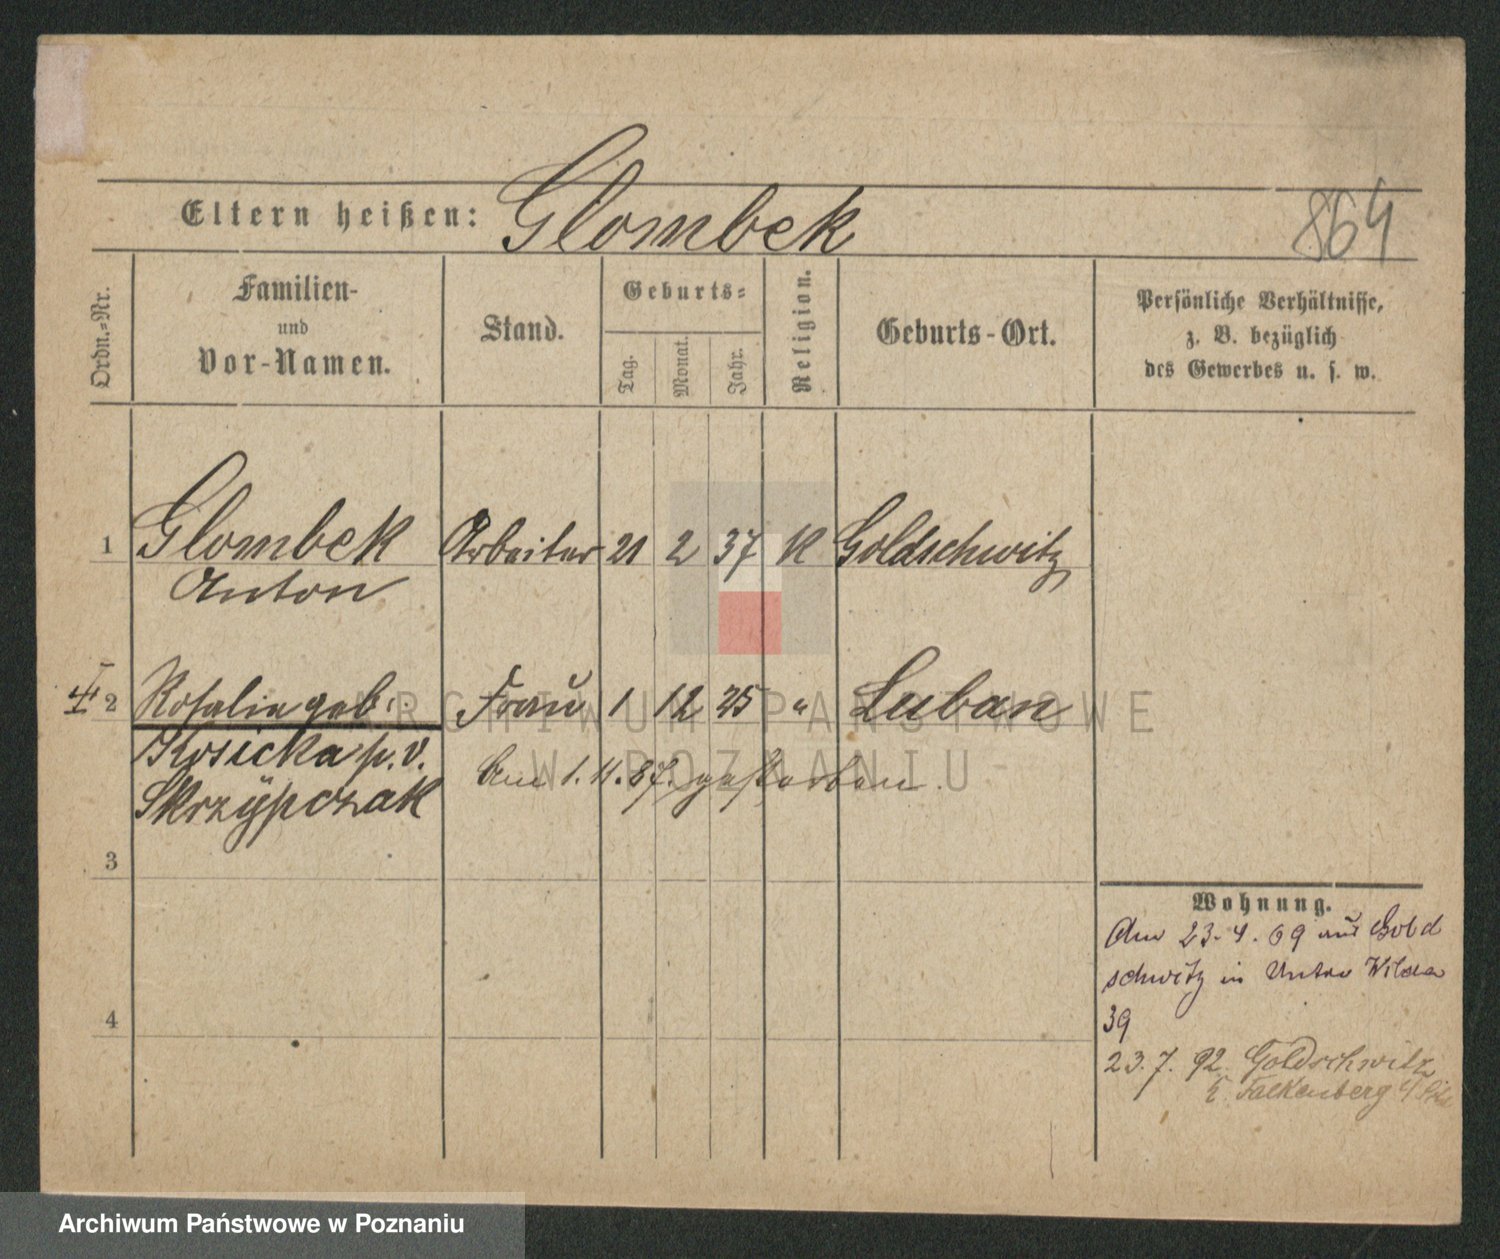 Eltern heißen: Glombek
864
Ordn.-Nr.
Familien-
und
Vor-Namen.
Stand.
Geburts-
Tag.
Monat.
Jahr.
Religion.
Geburts-Ort.
Persönliche Verhältnisse,
z. B. bezüglich
des Gewerbes u. s. w.
1 Glombek Arbeiter 21 2 37 K Goldschwitz
Anton
2 Rosalie geb. Frau 1 12 25 " Luban
Kosicka p. v.
Skrzypczak
Am 1. 11. 87. gestorben.
3
4
Wohnung.
Am 23. 4. 69 aus Gold
schwitz in Unter Wilda
39
23. 7. 92 Goldschwitz
Falkenberg
ARCHIWUM PAŃSTWOWE
W POZNANIU
Archiwum Państwowe w Poznaniu